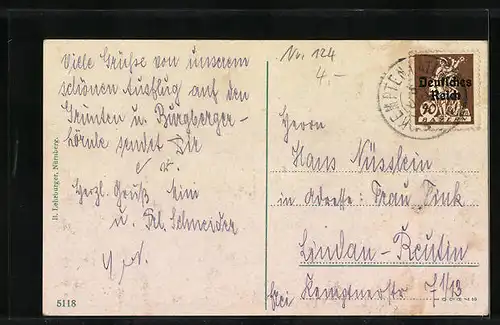 Viele Grüße von unserem
schönen Ausflug auf den
Grünten u. Burgberger-
hörnle sendet Dir
Herzl. Gruß
u. Frl. Schneider
Nr. 124
4.-
KEMPTEN
Deutsches
Reich
20
Herrn
Hans Nüsslein
in Adresse: Frau Fink
Lindau-Reutin
bei Kemptnerstr 7 1/13
B. Lehrburger, Nürnberg.
5118